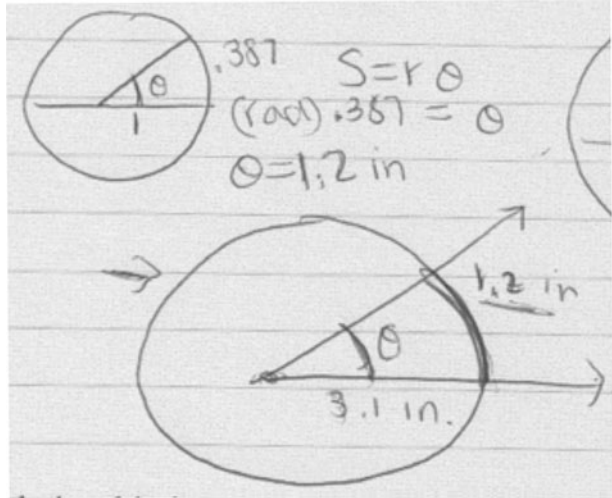 .387
θ
1
S=rθ
(rad) .387 = θ
θ=1.2 in
1.2 in
θ
3.1 in.